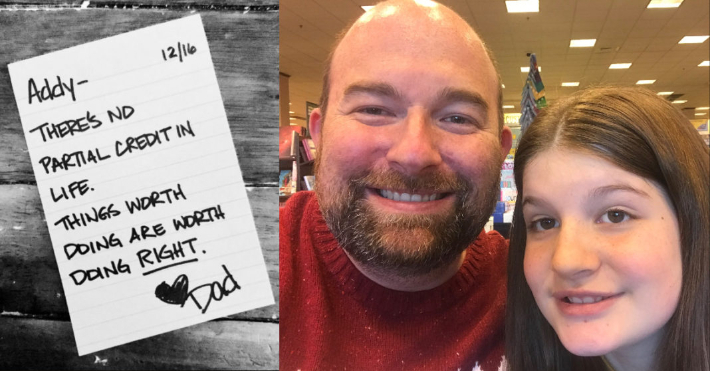 12/16
Addy-
THERE'S NO
PARTIAL CREDIT IN
LIFE.
THINGS WORTH
DOING ARE WORTH
DOING RIGHT.
♥ Dad